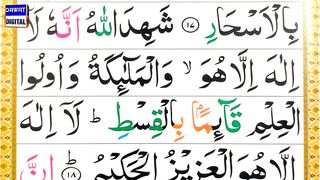 DAWAT
DIGITAL
بِالْاَسْحَارِ ۝۱۷ شَهِدَ اللّٰهُ اَنَّهٗ لَاۤ
اِلٰهَ اِلَّا هُوَ ۙ وَالْمَلٰٓئِكَةُ وَاُولُوا
الْعِلْمِ قَآئِمًۢا بِالْقِسْطِ ؕ لَاۤ اِلٰهَ
اِلَّا هُوَ الْعَزِيْزُ الْحَكِيْمُ ؕ ۝۱۸ اِنَّ